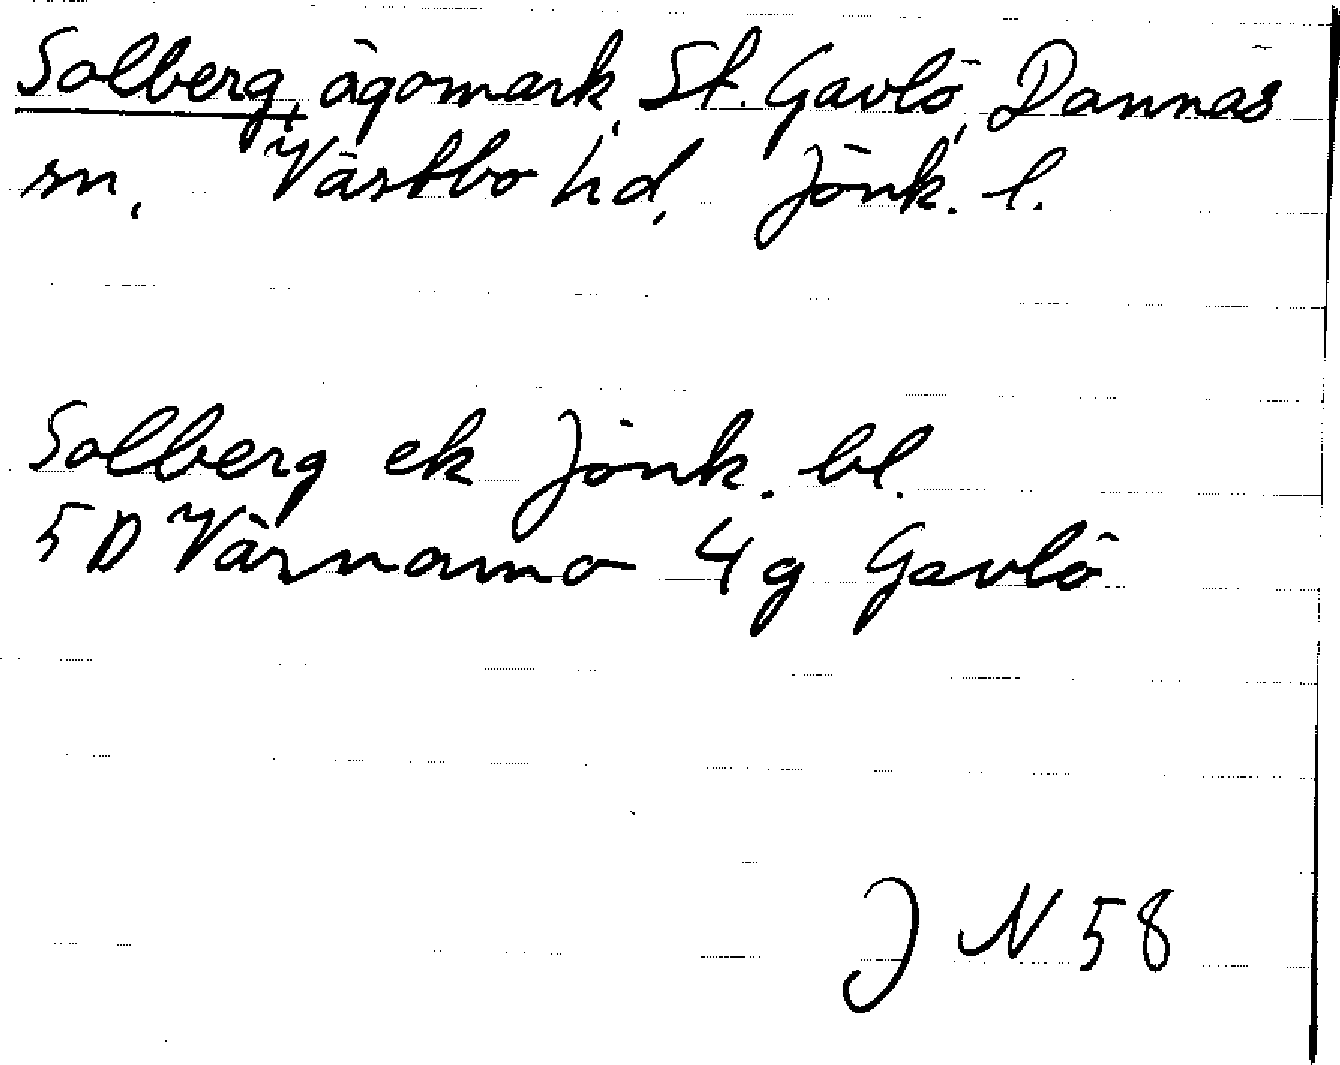 Solberg, ägomark, St. Gavlö, Dannäs
sn, Västbo hd, Jönk. l.
Solberg ek Jönk. bl.
5 D Värnamo 4 g Gavlö
J N 58